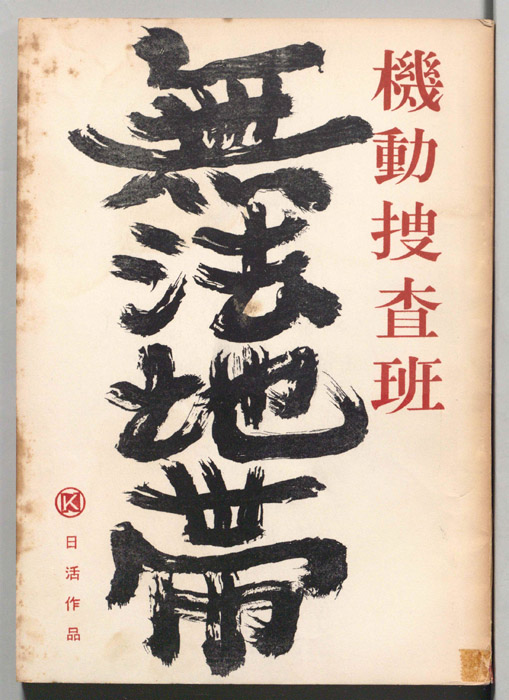 機動捜査班
無法地帯
K
日活作品